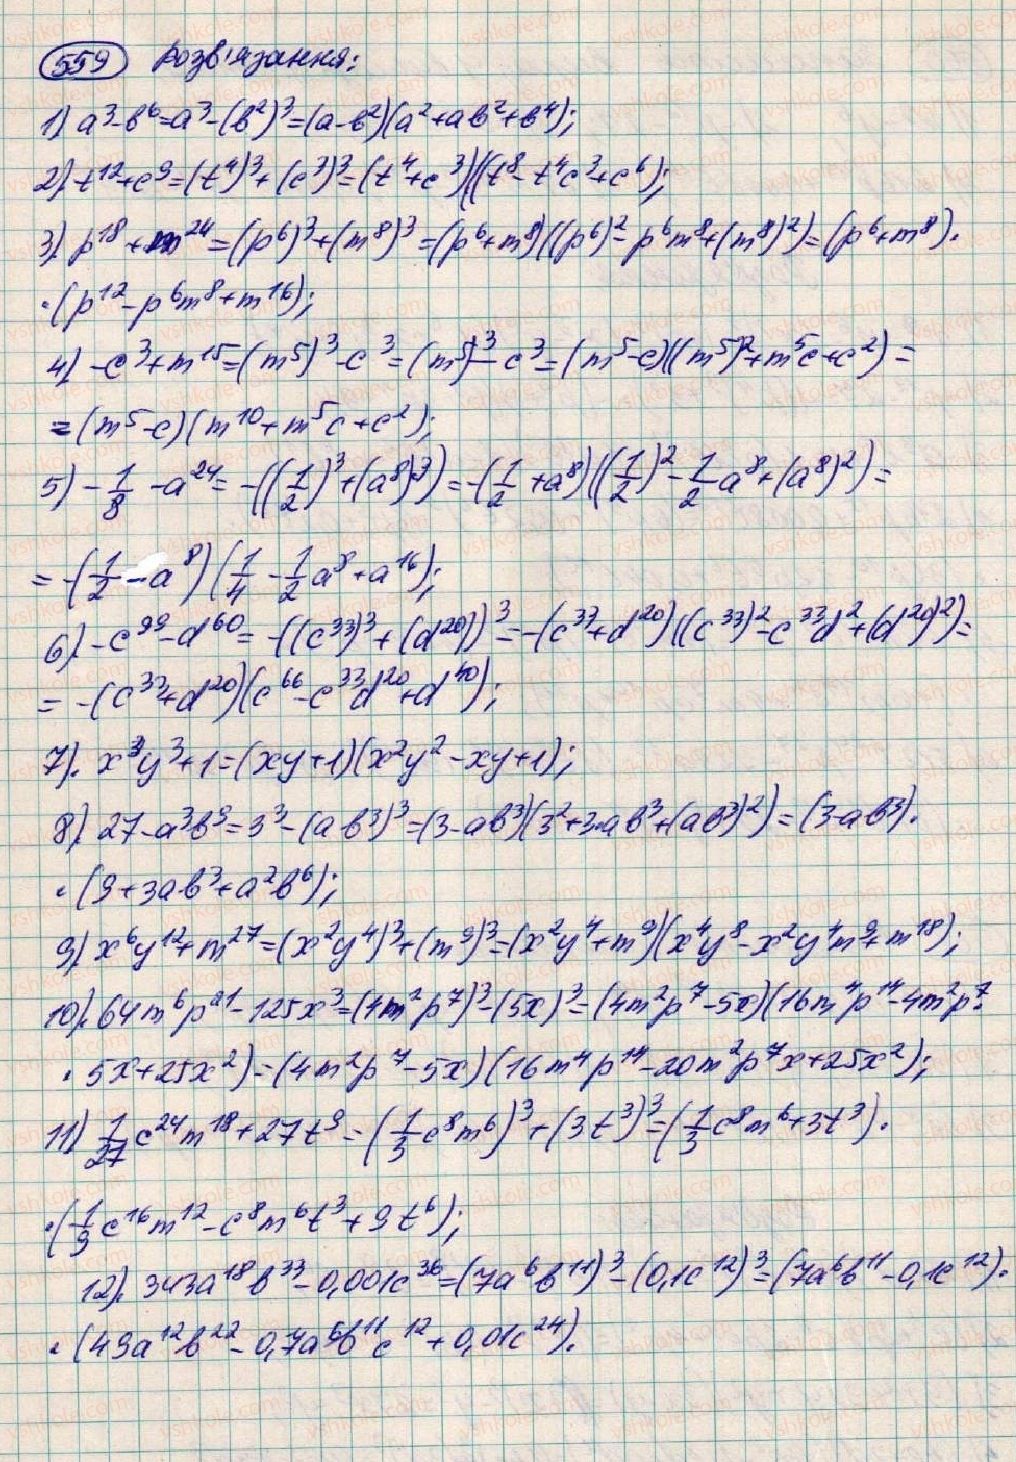 559 Розв'язання:
1) a³-b⁶=a³-(b²)³=(a-b²)(a²+ab²+b⁴);
2) t¹²+c⁹=(t⁴)³+(c³)³=(t⁴+c³)(t⁸-t⁴c³+c⁶);
3) p¹⁸+m²⁴=(p⁶)³+(m⁸)³=(p⁶+m⁸)((p⁶)²-p⁶m⁸+(m⁸)²)=(p⁶+m⁸)·
·(p¹²-p⁶m⁸+m¹⁶);
4) -c³+m¹⁵=(m⁵)³-c³=(m⁵)³-c³=(m⁵-c)((m⁵)²+m⁵c+c²)=
=(m⁵-c)(m¹⁰+m⁵c+c²);
5) -1/8-a²⁴=-((1/2)³+(a⁸)³)=-(1/2+a⁸)((1/2)²-1/2a⁸+(a⁸)²)=
=-(1/2-a⁸)(1/4-1/2a⁸+a¹⁶);
6) -c⁹⁹-d⁶⁰=-((c³³)³+(d²⁰))³=-(c³³+d²⁰)((c³³)²-c³³d²+(d²⁰)²)=
=-(c³³+d²⁰)(c⁶⁶-c³³d²⁰+d⁴⁰);
7) x³y³+1=(xy+1)(x²y²-xy+1);
8) 27-a³b⁹=3³-(ab³)³=(3-ab³)(3²+3·ab³+(ab³)²)=(3-ab³)·
·(9+3ab³+a²b⁶);
9) x⁶y¹²+m²⁷=(x²y⁴)³+(m⁹)³=(x²y⁴+m⁹)(x⁴y⁸-x²y⁴m⁹+m¹⁸);
10) 64m⁶p²¹-125x³=(4m²p⁷)³-(5x)³=(4m²p⁷-5x)(16m⁴p¹⁴-4m²p⁷·
·5x+25x²)=(4m²p⁷-5x)(16m⁴p¹⁴-20m²p⁷x+25x²);
11) 1/27c²⁴m¹⁸+27t⁹=(1/3c⁸m⁶)³+(3t³)³=(1/3c⁸m⁶+3t³)·
·(1/9c¹⁶m¹²-c⁸m⁶t³+9t⁶);
12) 343a¹⁸b³³-0,001c³⁶=(7a⁶b¹¹)³-(0,1c¹²)³=(7a⁶b¹¹-0,1c¹²)·
·(49a¹²b²²-0,7a⁶b¹¹c¹²+0,01c²⁴).